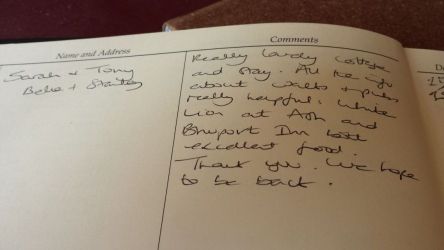 Name and Address
Comments
Sarah + Tony
Really lovely cottage
and stay. All the info
about walks + pubs
really helpful. White
Lion at Ash and
Inn both
excellent food.
Thank you. We hope
to be back.